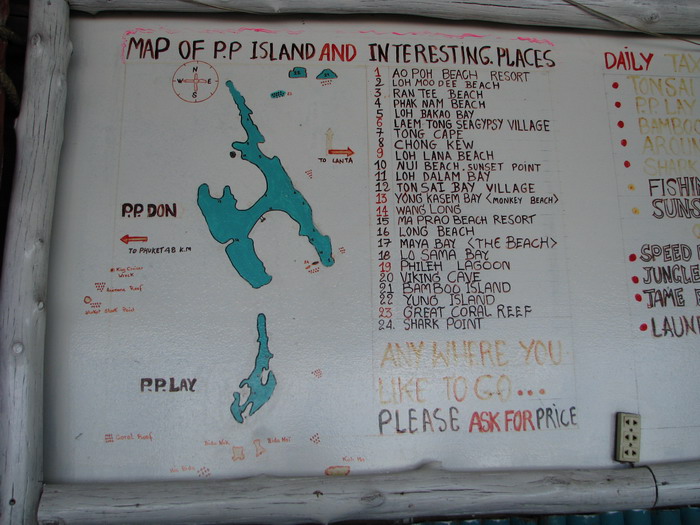 MAP OF P.P ISLAND AND INTERESTING PLACES
N
W E
S
TO LANTA
P.P. DON
TO PHUKET 48 K.M
King Cruiser
Wreck
Anemone Reef
Shark Point
P.P. LAY
Coral Reef
Bida Nok
Bida Nai
1 AO POH BEACH RESORT
2 LOH MOO DEE BEACH
3 RAN TEE BEACH
4 PHAK NAM BEACH
5 LOH BAKAO BAY
6 LAEM TONG SEAGYPSY VILLAGE
7 TONG CAPE
8 CHONG KEW
9 LOH LANA BEACH
10 NUI BEACH. SUNSET POINT
11 LOH DALAM BAY
12 TON SAI BAY VILLAGE
13 YONG KASEM BAY <MONKEY BEACH>
14 WANG LONG
15 MA PRAO BEACH RESORT
16 LONG BEACH
17 MAYA BAY <THE BEACH>
18 LO SAMA BAY
19 PHILEH LAGOON
20 VIKING CAVE
21 BAMBOO ISLAND
22 YUNG ISLAND
23 GREAT CORAL REEF
24. SHARK POINT
ANY WHERE YOU
LIKE TO GO...
PLEASE ASK FOR PRICE
DAILY TAX
TONSAI
P.P. LAY
BAMBOO
AROUN
SHARK
FISHIN
SUNS
SPEED
JUNGLE
JAME
LAUN